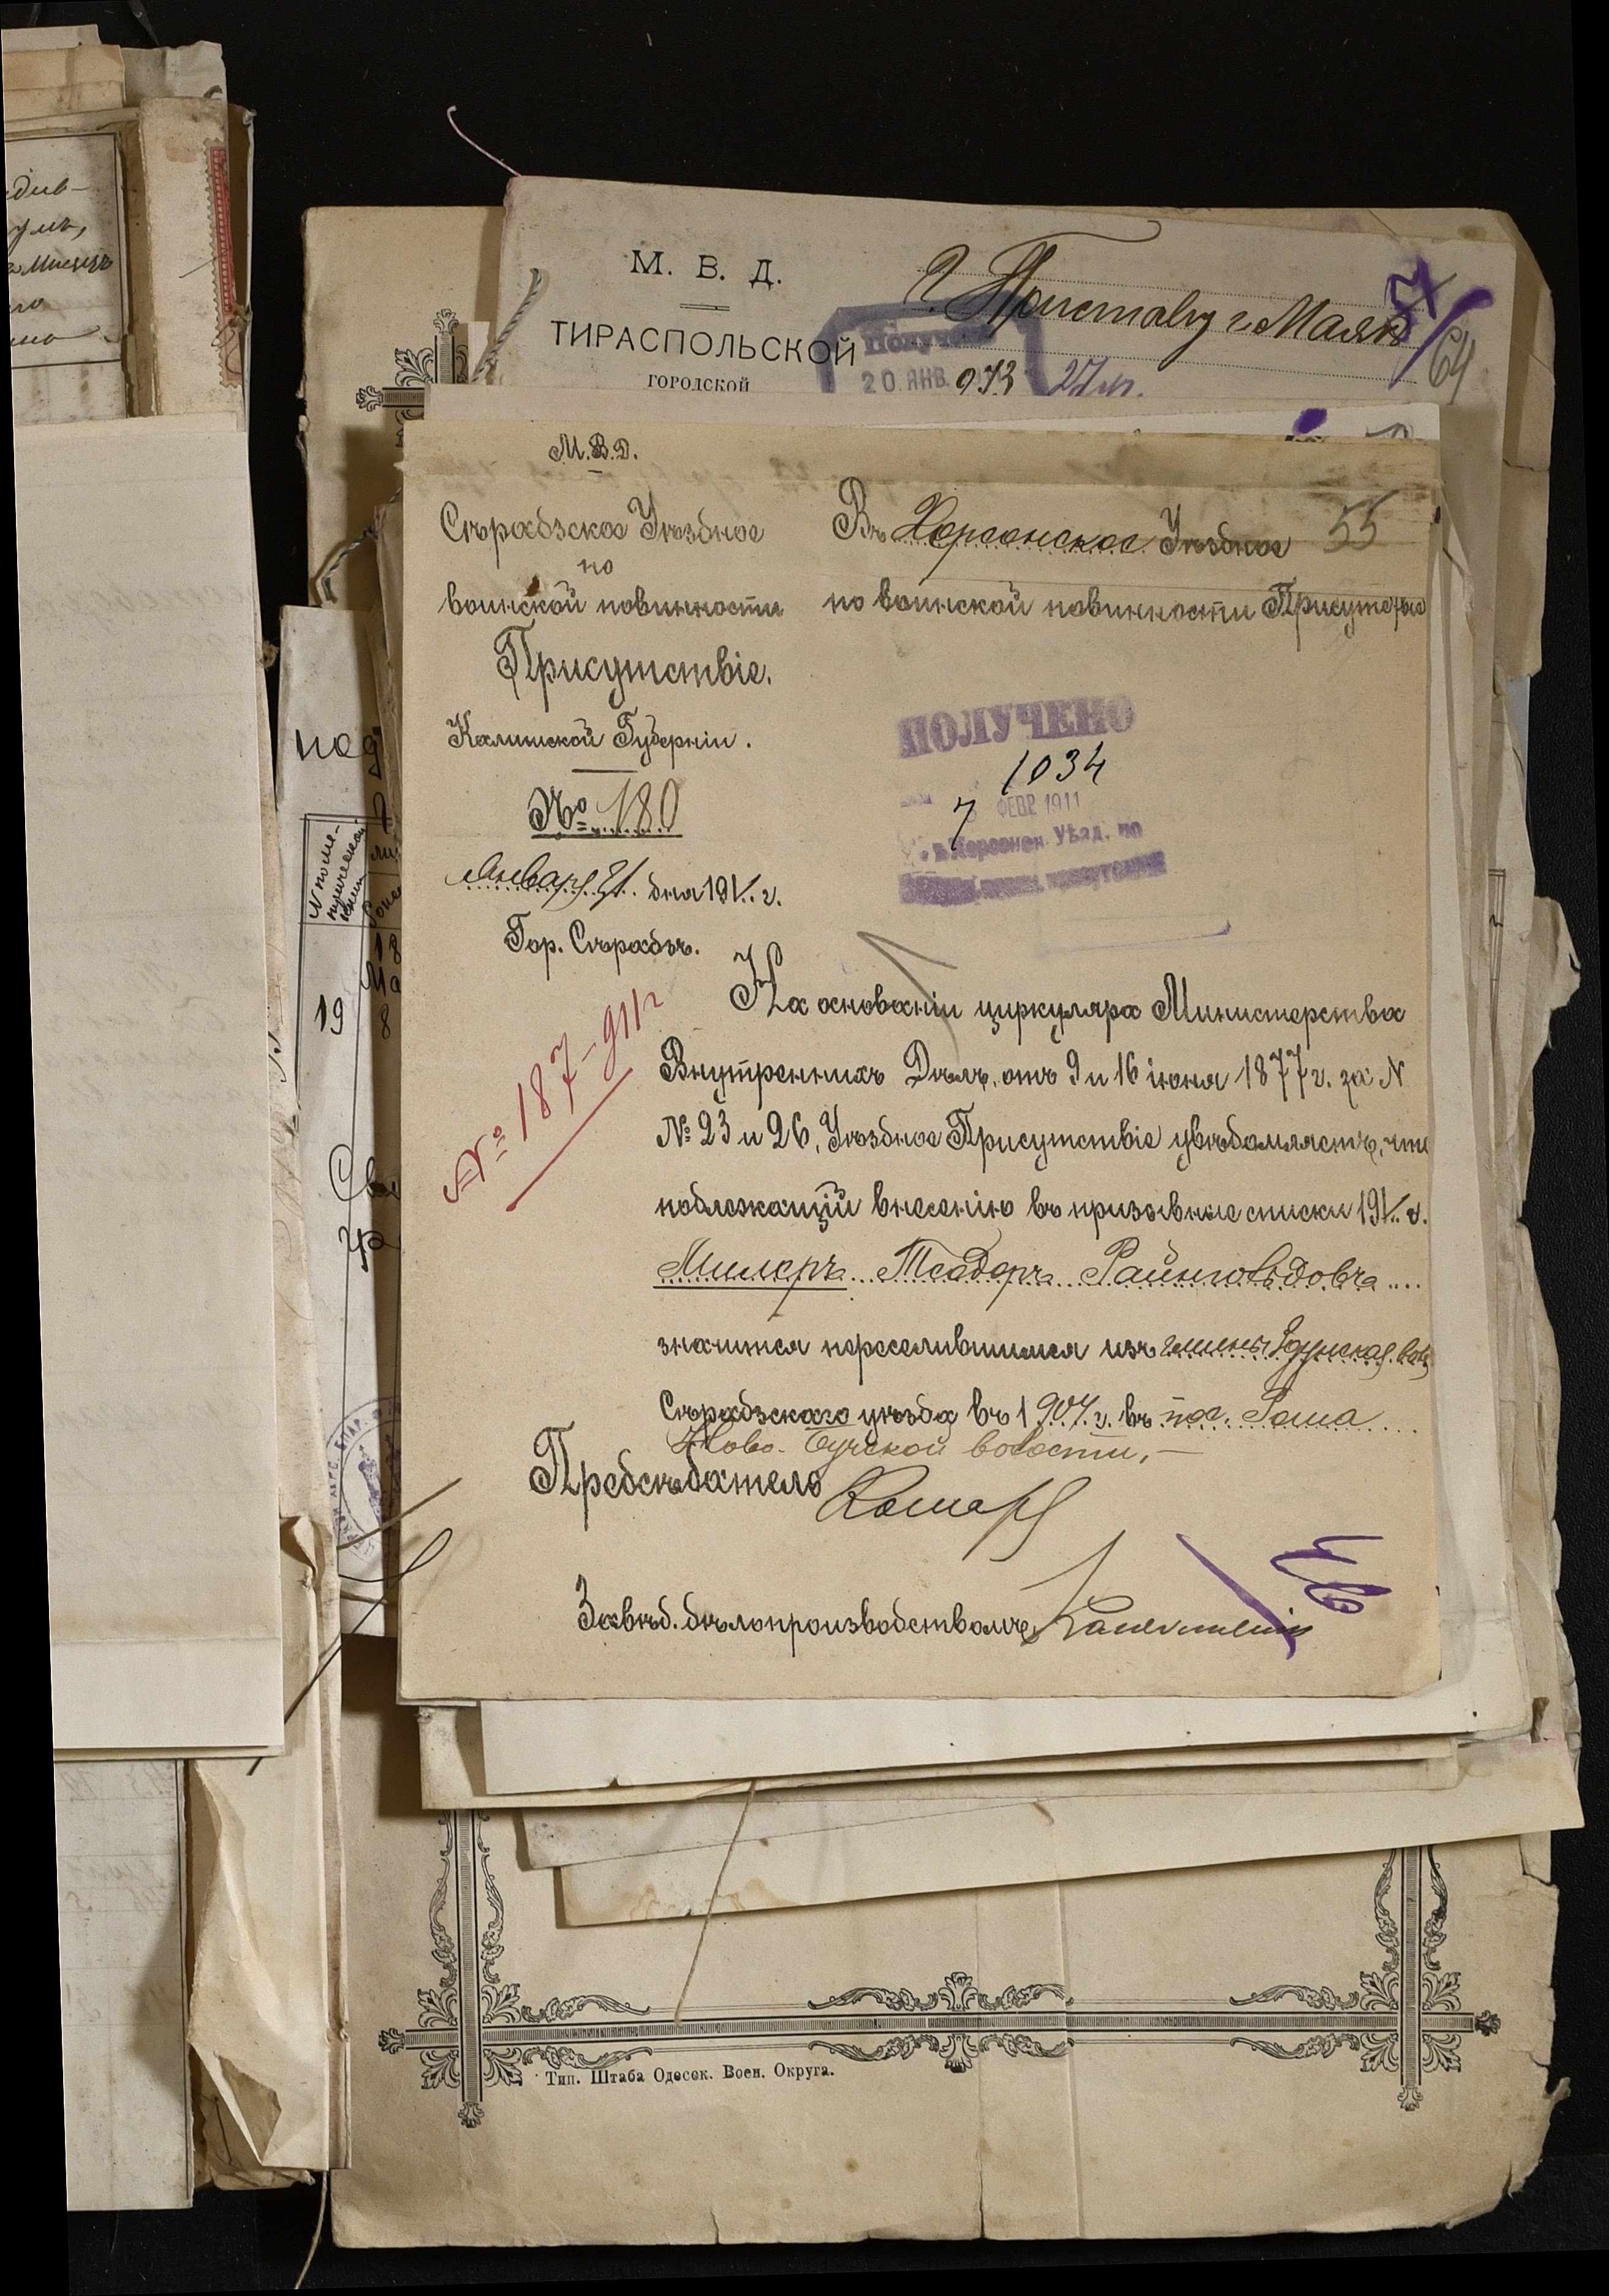 М. В. Д.
ТИРАСПОЛЬСКОЙ
ГОРОДСКОЙ
Г. Приставу г. Маякъ
64
20 ЯНВ. 973
М.В.Д.
Сѣрадзское Уѣздное
по
воинской повинности
Присутствіе.
Калишской Губерніи.
№ 180
Января 21 дня 1911 г.
Гор. Сѣрадзъ.
№ 187-911 г
Въ Херсонское Уѣздное
55
по воинской повинности Присутствіе
ПОЛУЧЕНО
1034
7 ФЕВР 1911
Херсонск. Уѣзд. по
На основаніи циркуляра Министерства
Внутреннихъ Дѣлъ, отъ 9 и 16 іюня 1877 г. за N
№ 23 и 26, Уѣздное Присутствіе увѣдомляетъ, что
подлежащій внесенію въ призывные списки 1911 г.
Милеръ Теодоръ Райнгольдовъ
значится переселившимся изъ гмины
Сѣрадзскаго уѣзда въ 1907 г. въ пос.
Ново-Бугской волости,-
Предсѣдатель
Завѣд. дѣлопроизводствомъ
под
19
18
8
Тип. Штаба Одесск. Воен. Округа.